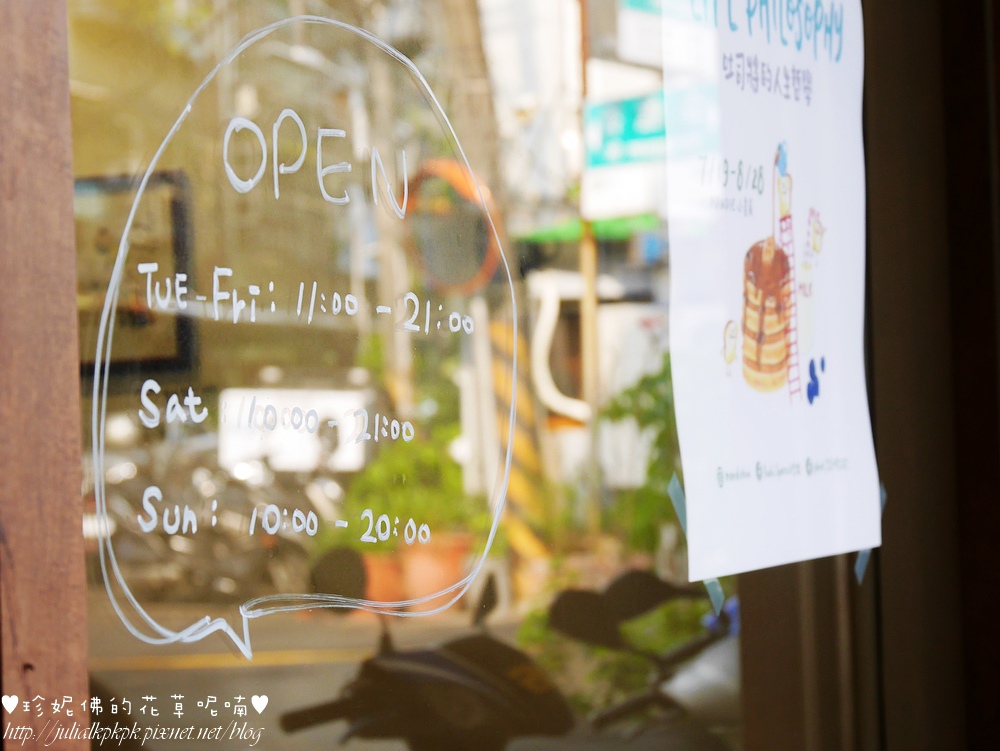 OPEN
TUE-Fri: 11:00 - 21:00
Sat : 10:00 - 21:00
Sun: 10:00 - 20:00
LIFE PHILOSOPHY
的人生哲學
7/19-8/28
MILK
♥珍妮佛的花草呢喃♥
http://julialkpkpk.pixnet.net/blog